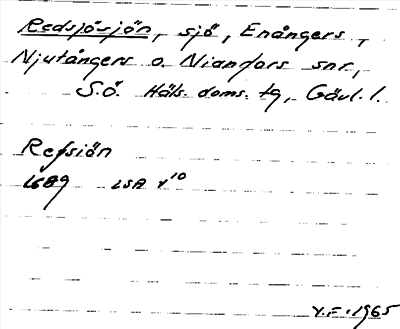 Redsjösjön, sjö, Enångers,
Njutångers o. Nianfors snr,
S.Ö. Häls. doms. tg, Gävl. l.
Refsiön
1689 LSA v¹⁰
V.F. 1965